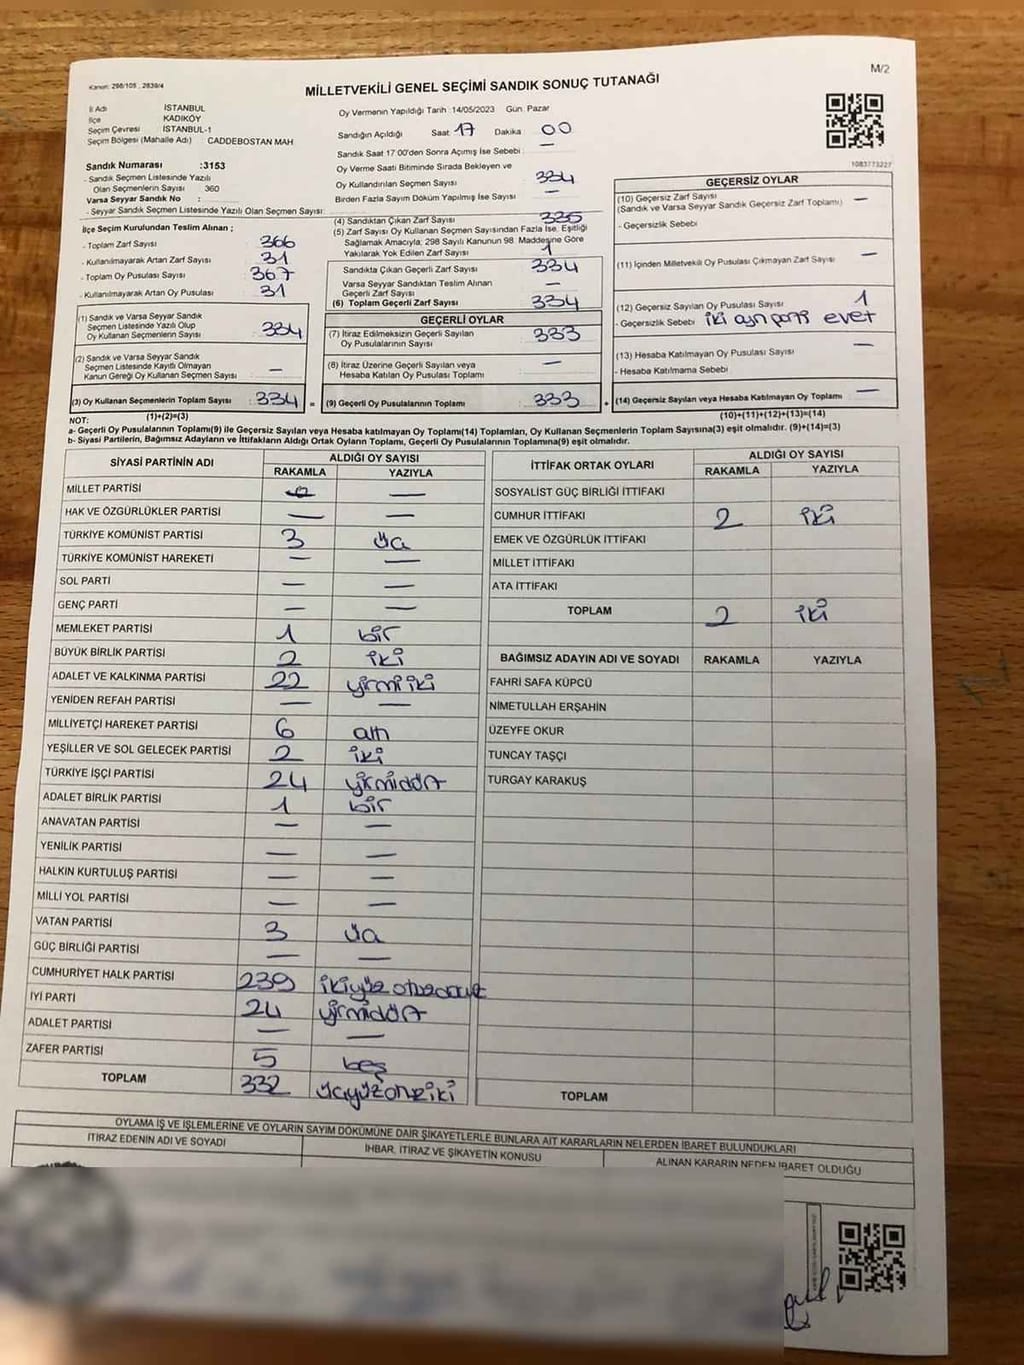 Kanun: 298/105 , 2839/4
MİLLETVEKİLİ GENEL SEÇİMİ SANDIK SONUÇ TUTANAĞI
M/2
İl Adı İSTANBUL
İlçe KADIKÖY
Seçim Çevresi İSTANBUL-1
Seçim Bölgesi (Mahalle Adı) CADDEBOSTAN MAH
Sandık Numarası :3153
- Sandık Seçmen Listesinde Yazılı
Olan Seçmenlerin Sayısı 360
Varsa Seyyar Sandık No :
- Seyyar Sandık Seçmen Listesinde Yazılı Olan Seçmen Sayısı:
İlçe Seçim Kurulundan Teslim Alınan ;
- Toplam Zarf Sayısı 366
- Kullanılmayarak Artan Zarf Sayısı 31
- Toplam Oy Pusulası Sayısı 367
- Kullanılmayarak Artan Oy Pusulası 31
(1) Sandık ve Varsa Seyyar Sandık
Seçmen Listesinde Yazılı Olup
Oy Kullanan Seçmenlerin Sayısı 334
(2) Sandık ve Varsa Seyyar Sandık
Seçmen Listesinde Kayıtlı Olmayan
Kanun Gereği Oy Kullanan Seçmen Sayısı —
(3) Oy Kullanan Seçmenlerin Toplam Sayısı 334 =
(1)+(2)=(3)
Oy Vermenin Yapıldığı Tarih : 14/05/2023 Gün: Pazar
Sandığın Açıldığı Saat 17 Dakika 00
Sandık Saat 17:00'den Sonra Açımış İse Sebebi : —
Oy Verme Saati Bitiminde Sırada Bekleyen ve
Oy Kullandırılan Seçmen Sayısı 334
Birden Fazla Sayım Döküm Yapılmış İse Sayısı —
(4) Sandıktan Çıkan Zarf Sayısı 335
(5) Zarf Sayısı Oy Kullanan Seçmen Sayısından Fazla İse, Eşitliği
Sağlamak Amacıyla; 298 Sayılı Kanunun 98. Maddesine Göre
Yakılarak Yok Edilen Zarf Sayısı 1
Sandıkta Çıkan Geçerli Zarf Sayısı 334
Varsa Seyyar Sandıktan Teslim Alınan
Geçerli Zarf Sayısı —
(6) Toplam Geçerli Zarf Sayısı 334
GEÇERLİ OYLAR
(7) İtiraz Edilmeksizin Geçerli Sayılan
Oy Pusulalarının Sayısı 333
(8) İtiraz Üzerine Geçerli Sayılan veya
Hesaba Katılan Oy Pusulası Toplamı —
(9) Geçerli Oy Pusulalarının Toplamı 333 +
1083773227
GEÇERSİZ OYLAR
(10) Geçersiz Zarf Sayısı —
(Sandık ve Varsa Seyyar Sandık Geçersiz Zarf Toplamı)
- Geçersizlik Sebebi
(11) İçinden Milletvekili Oy Pusulası Çıkmayan Zarf Sayısı —
(12) Geçersiz Sayılan Oy Pusulası Sayısı 1
- Geçersizlik Sebebi iki ayrı parti evet
(13) Hesaba Katılmayan Oy Pusulası Sayısı —
- Hesaba Katılmama Sebebi
(14) Geçersiz Sayılan veya Hesaba Katılmayan Oy Toplamı —
(10)+(11)+(12)+(13)=(14)
NOT:
a- Geçerli Oy Pusulalarının Toplamı(9) ile Geçersiz Sayılan veya Hesaba Katılmayan Oy Toplamı(14) Toplamları, Oy Kullanan Seçmenlerin Toplam Sayısına(3) eşit olmalıdır. (9)+(14)=(3)
b- Siyasi Partilerin, Bağımsız Adayların ve İttifakların Aldığı Ortak Oyların Toplamı, Geçerli Oy Pusulalarının Toplamına(9) eşit olmalıdır.
SİYASİ PARTİNİN ADI ALDIĞI OY SAYISI
RAKAMLA YAZIYLA
MİLLET PARTİSİ —
HAK VE ÖZGÜRLÜKLER PARTİSİ — —
TÜRKİYE KOMÜNİST PARTİSİ 3 üç
TÜRKİYE KOMÜNİST HAREKETİ — —
SOL PARTİ — —
GENÇ PARTİ — —
MEMLEKET PARTİSİ 1 bir
BÜYÜK BİRLİK PARTİSİ 2 iki
ADALET VE KALKINMA PARTİSİ 22 yirmiiki
YENİDEN REFAH PARTİSİ — —
MİLLİYETÇİ HAREKET PARTİSİ 6 altı
YEŞİLLER VE SOL GELECEK PARTİSİ 2 iki
TÜRKİYE İŞÇİ PARTİSİ 24 yirmidört
ADALET BİRLİK PARTİSİ 1 bir
ANAVATAN PARTİSİ — —
YENİLİK PARTİSİ — —
HALKIN KURTULUŞ PARTİSİ — —
MİLLİ YOL PARTİSİ — —
VATAN PARTİSİ 3 üç
GÜÇ BİRLİĞİ PARTİSİ — —
CUMHURİYET HALK PARTİSİ 239 ikiyüzotuzdokuz
İYİ PARTİ 24 yirmidört
ADALET PARTİSİ — —
ZAFER PARTİSİ 5 beş
TOPLAM 332 üçyüzotuziki
İTTİFAK ORTAK OYLARI ALDIĞI OY SAYISI
RAKAMLA YAZIYLA
SOSYALİST GÜÇ BİRLİĞİ İTTİFAKI
CUMHUR İTTİFAKI 2 iki
EMEK VE ÖZGÜRLÜK İTTİFAKI
MİLLET İTTİFAKI
ATA İTTİFAKI
TOPLAM 2 iki
BAĞIMSIZ ADAYIN ADI VE SOYADI RAKAMLA YAZIYLA
FAHRİ SAFA KÜPCÜ
NİMETULLAH ERŞAHİN
ÜZEYFE OKUR
TUNCAY TAŞÇI
TURGAY KARAKUŞ
TOPLAM
OYLAMA İŞ VE İŞLEMLERİNE VE OYLARIN SAYIM DÖKÜMÜNE DAİR ŞİKAYETLERLE BUNLARA AİT KARARLARIN NELERDEN İBARET BULUNDUKLARI
İTİRAZ EDENİN ADI VE SOYADI İHBAR, İTİRAZ VE ŞİKAYETİN KONUSU ALINAN KARARIN NEDEN İBARET OLDUĞU